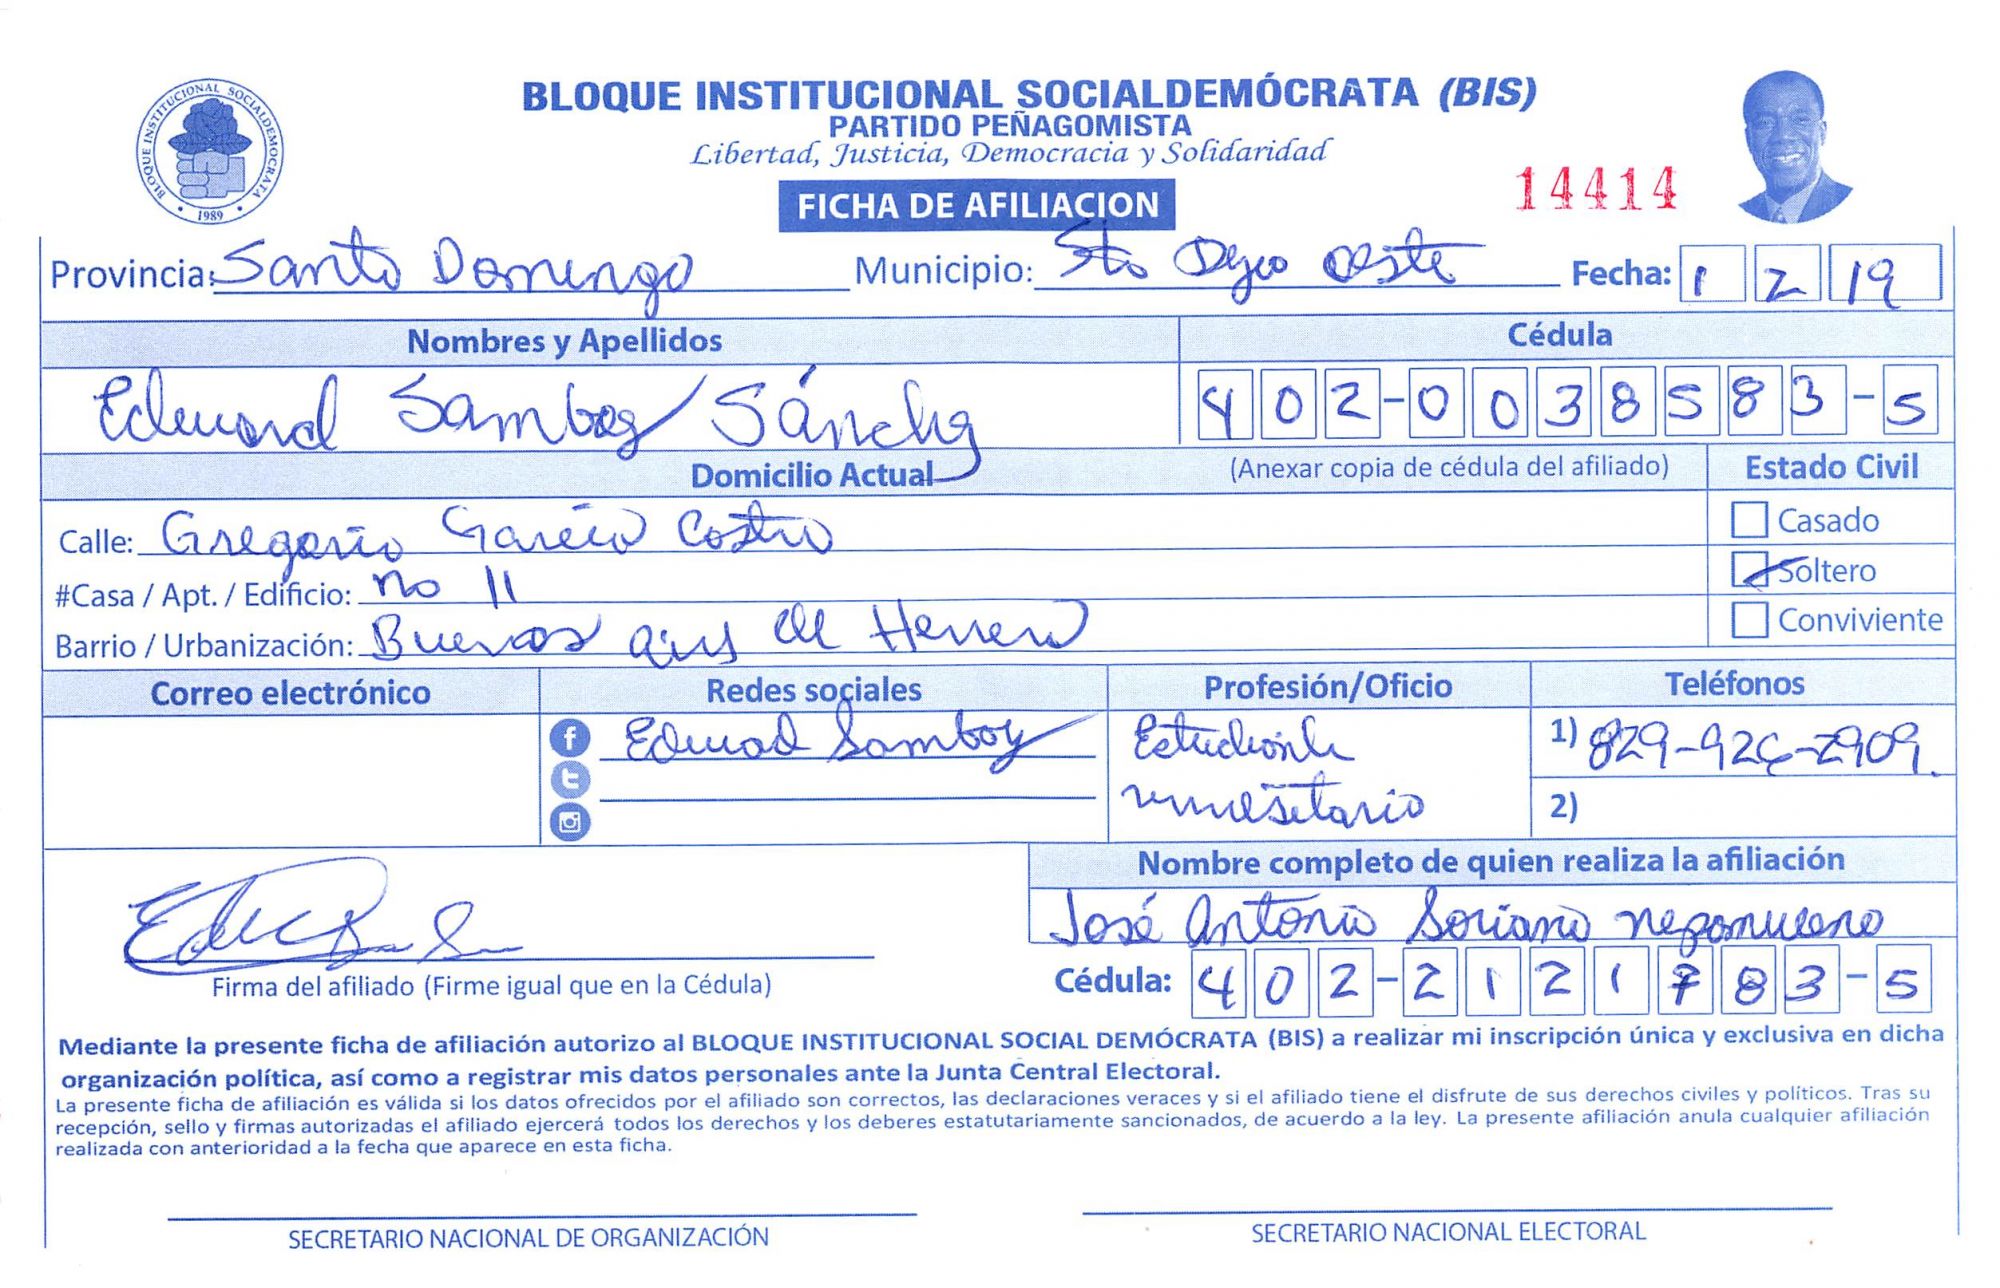 BLOQUE INSTITUCIONAL SOCIALDEMÓCRATA
1989
BLOQUE INSTITUCIONAL SOCIALDEMÓCRATA (BIS)
PARTIDO PEÑAGOMISTA
Libertad, Justicia, Democracia y Solidaridad
14414
FICHA DE AFILIACION
Provincia: Santo Domingo Municipio: Sto Dgo Oeste Fecha: 1 2 19
Nombres y Apellidos Cédula
Edward Samboy Sánchez 402-0038583-5
Domicilio Actual (Anexar copia de cédula del afiliado) Estado Civil
Calle: Gregorio García Castro Casado
#Casa / Apt. / Edificio: no 11 Soltero
Barrio / Urbanización: Buenos aires de Herrera Conviviente
Correo electrónico Redes sociales Profesión/Oficio Teléfonos
Edward Samboy Estudiante 1) 829-926-2909
universitario 2)
Nombre completo de quien realiza la afiliación
José Antonio Soriano nepomuceno
Firma del afiliado (Firme igual que en la Cédula) Cédula: 402-2121783-5
Mediante la presente ficha de afiliación autorizo al BLOQUE INSTITUCIONAL SOCIAL DEMÓCRATA (BIS) a realizar mi inscripción única y exclusiva en dicha
organización política, así como a registrar mis datos personales ante la Junta Central Electoral.
La presente ficha de afiliación es válida si los datos ofrecidos por el afiliado son correctos, las declaraciones veraces y si el afiliado tiene el disfrute de sus derechos civiles y políticos. Tras su
recepción, sello y firmas autorizadas el afiliado ejercerá todos los derechos y los deberes estatutariamente sancionados, de acuerdo a la ley. La presente afiliación anula cualquier afiliación
realizada con anterioridad a la fecha que aparece en esta ficha.
SECRETARIO NACIONAL DE ORGANIZACIÓN SECRETARIO NACIONAL ELECTORAL